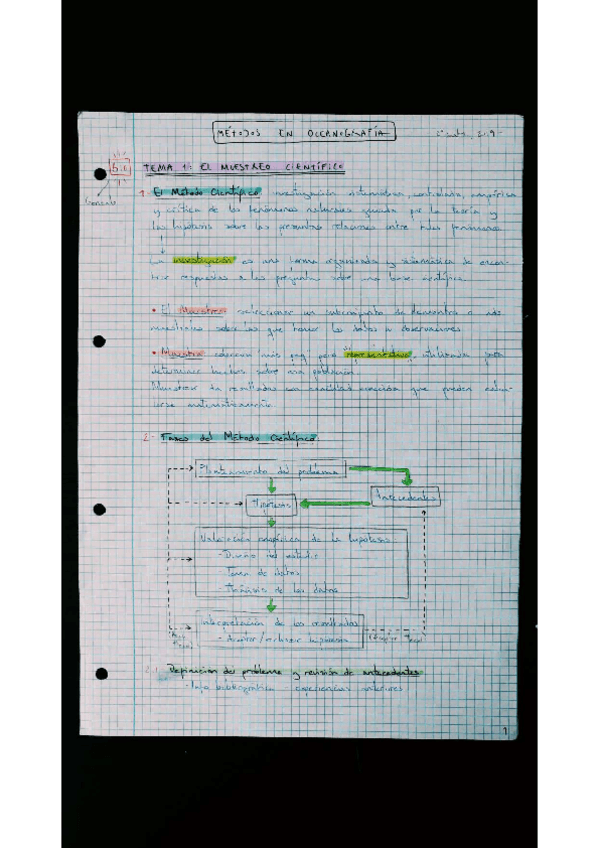 MÉTODOS EN OCEANOGRAFÍA
TEMA 1: EL MUESTREO CIENTÍFICO
1. El Método Científico investigación sistemática, controlada, empírica
y crítica de los fenómenos naturales guiada por la teoría y
las hipótesis sobre las presuntas relaciones entre tales fenómenos
La investigación es una forma organizada y sistemática de encon-
trar respuestas a las preguntas sobre una base científica.
• El Muestreo seleccionar un subconjunto de elementos o
sobre los que tomar los datos u observaciones
• Muestra colección más peq. pero "representativa", utilizada para
determinar hechos sobre una población.
Muestreo da resultados con exactitud conocida que pueden calcu-
larse matemáticamente
2.- Fases del Método Científico
Planteamiento del problema
Hipótesis
Antecedentes
Valoración empírica de la hipótesis
- Diseño del estudio
- Toma de datos
- Análisis de los datos
Interpretación de los resultados
- Aceptar/rechazar hipótesis
2.1 Definición del problema y revisión de antecedentes
- Info bibliográfica - experiencias anteriores
1